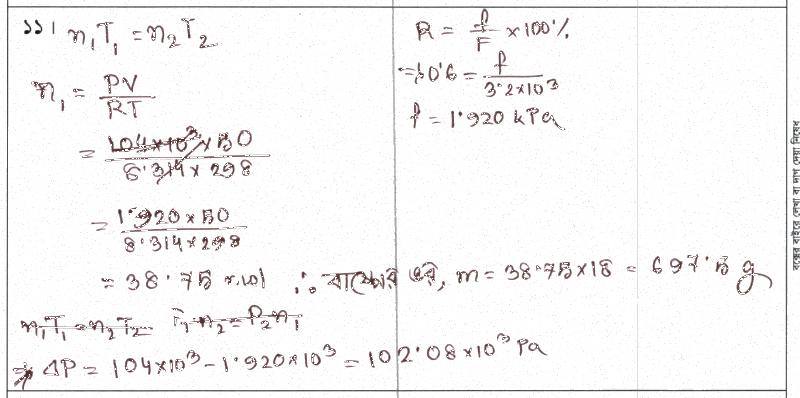 ১১। n₁T₁ = n₂T₂
n₁ = PV/RT
= 104×10³ × 50 / 8.314 × 298
= 1.920 × 50 / 8.314 × 298
= 38.75 mol ∴ বাষ্পের ভর, m = 38.75×18 = 697.5 g
n₁T₁ = n₂T₂ P₁n₂ = P₂n₁
⇒ ΔP = 104×10³ − 1.920×10³ = 102.08×10³ Pa
R = f/F × 100%
⇒ 0.6 = f / 3.2×10³
f = 1.920 kPa
বক্সের বাইরে লেখা বা দাগ দেয়া নিষেধ